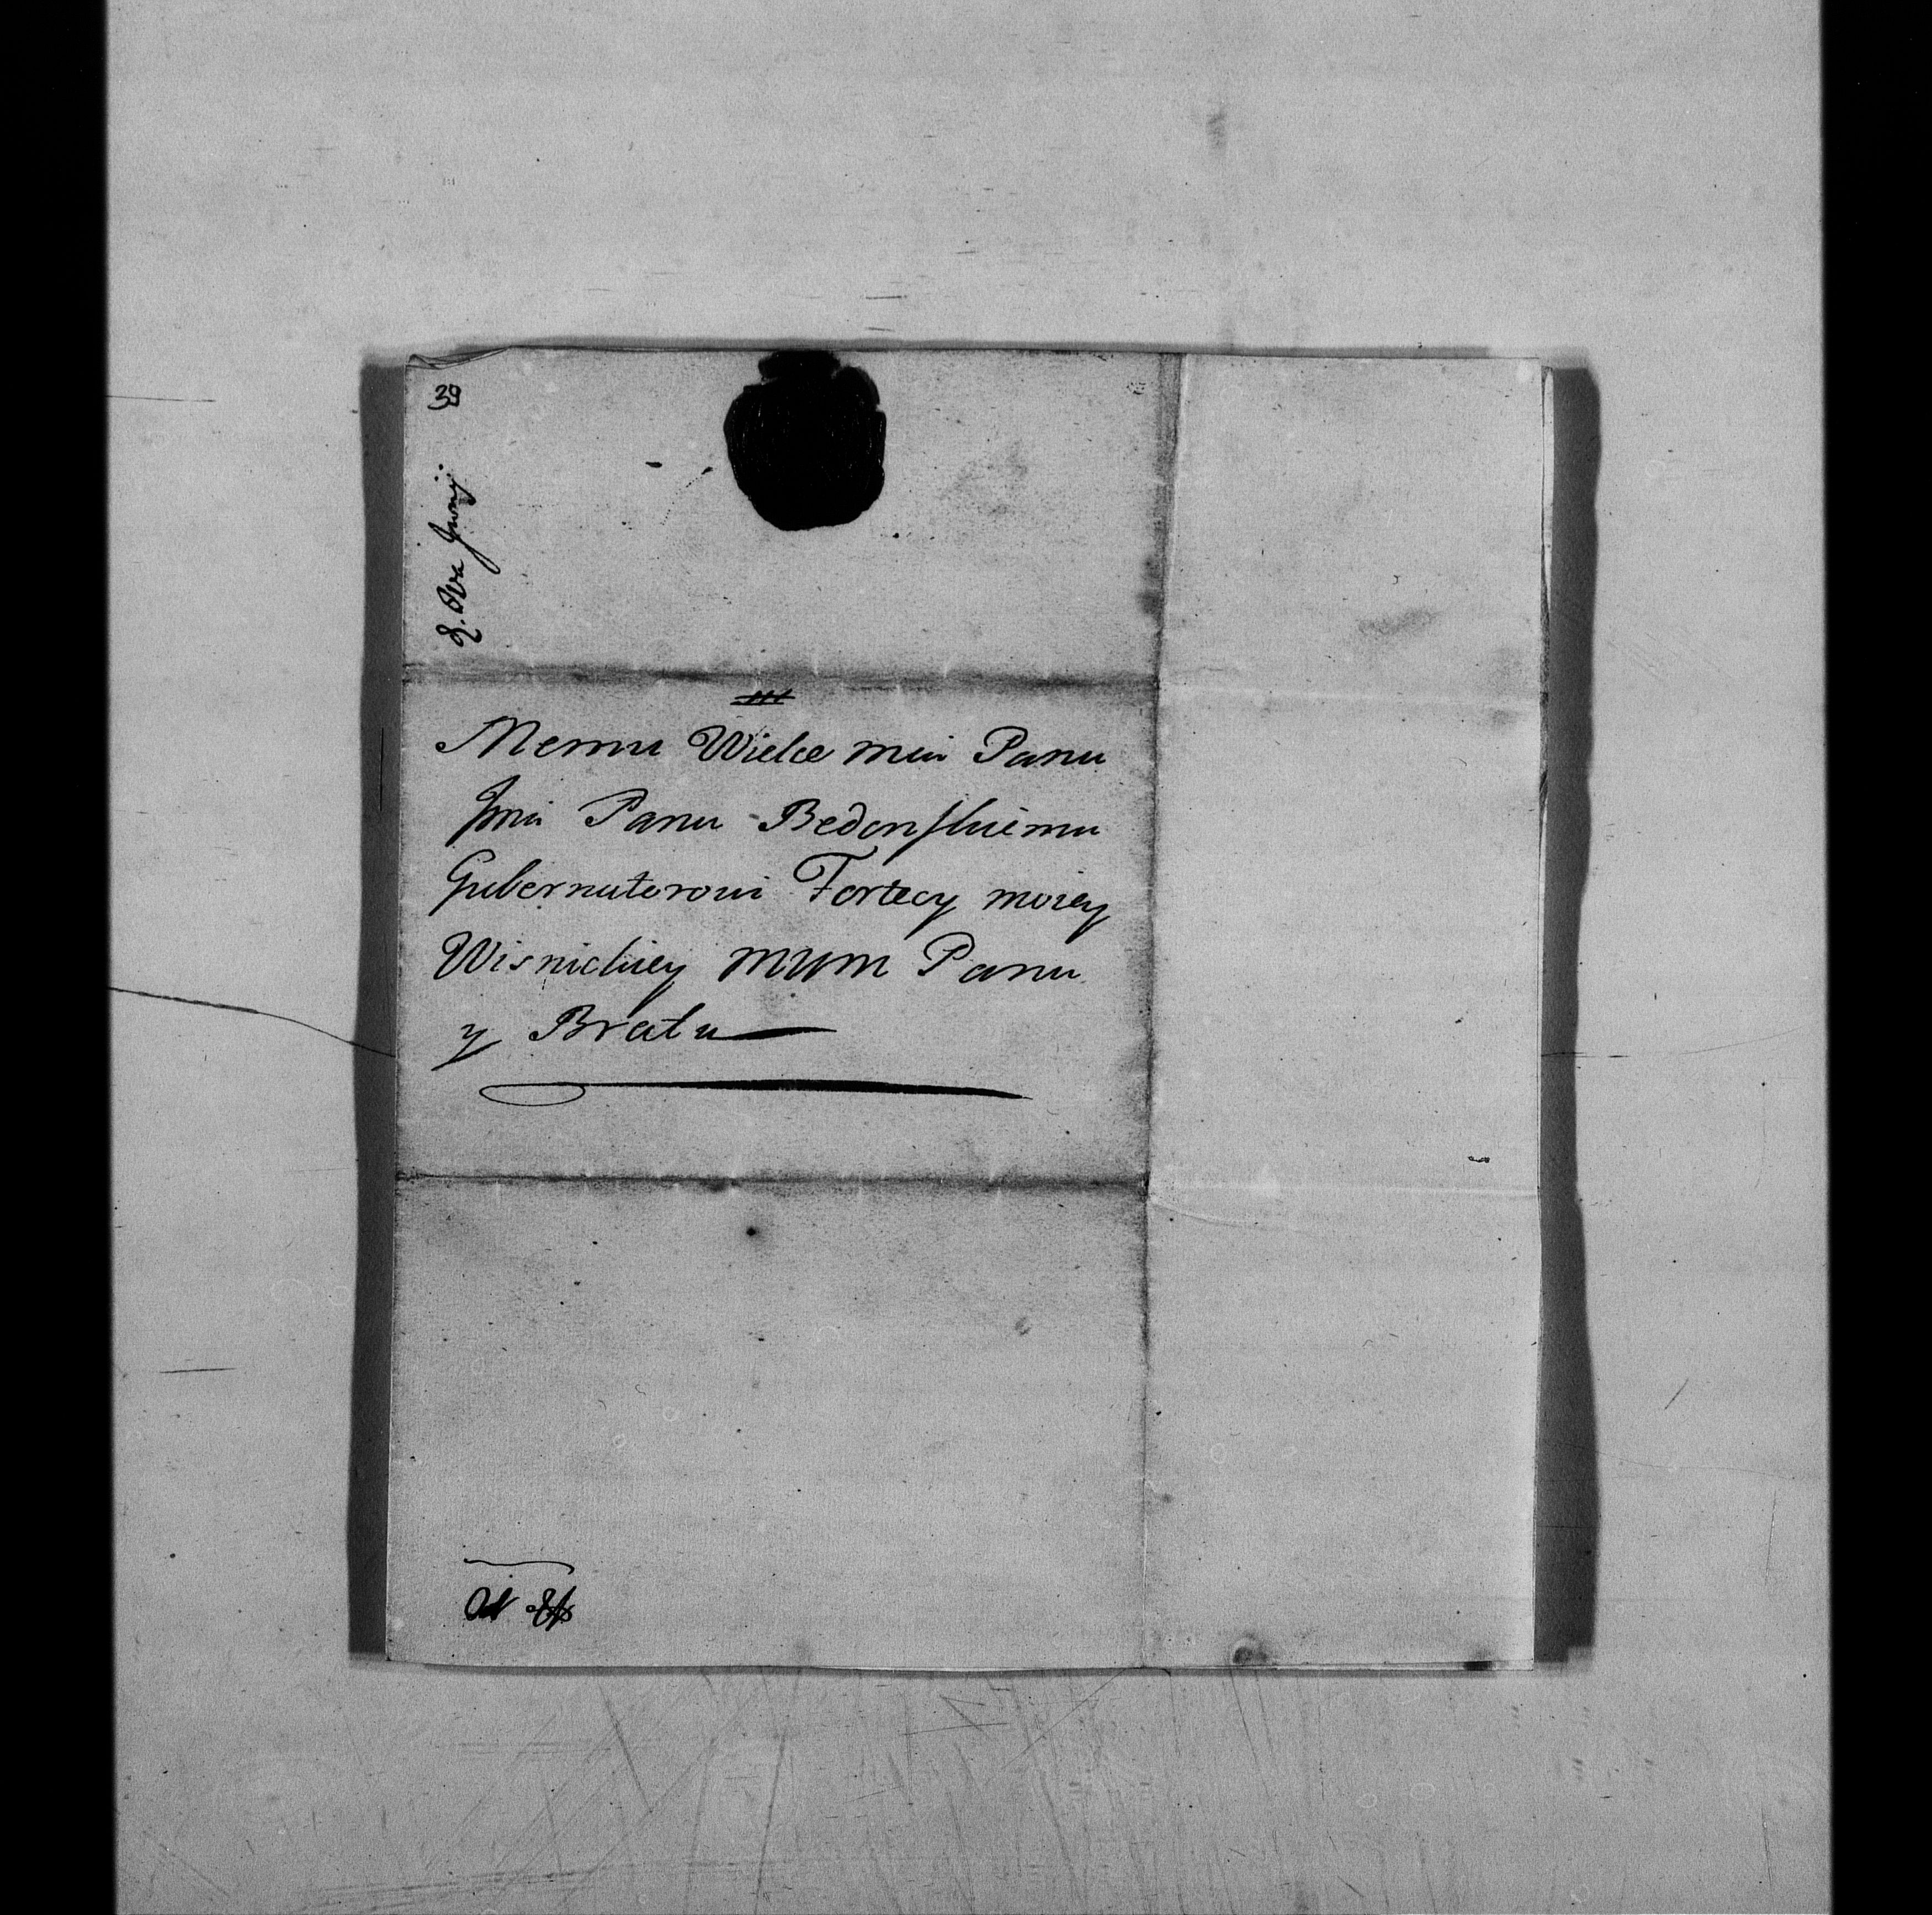 39
Memu Wielce mći Panu
Jmći Panu Bedonskiemu
Gubernatorowi Fortecy moiey
Wisnickiey MWM Panu
y Bratu